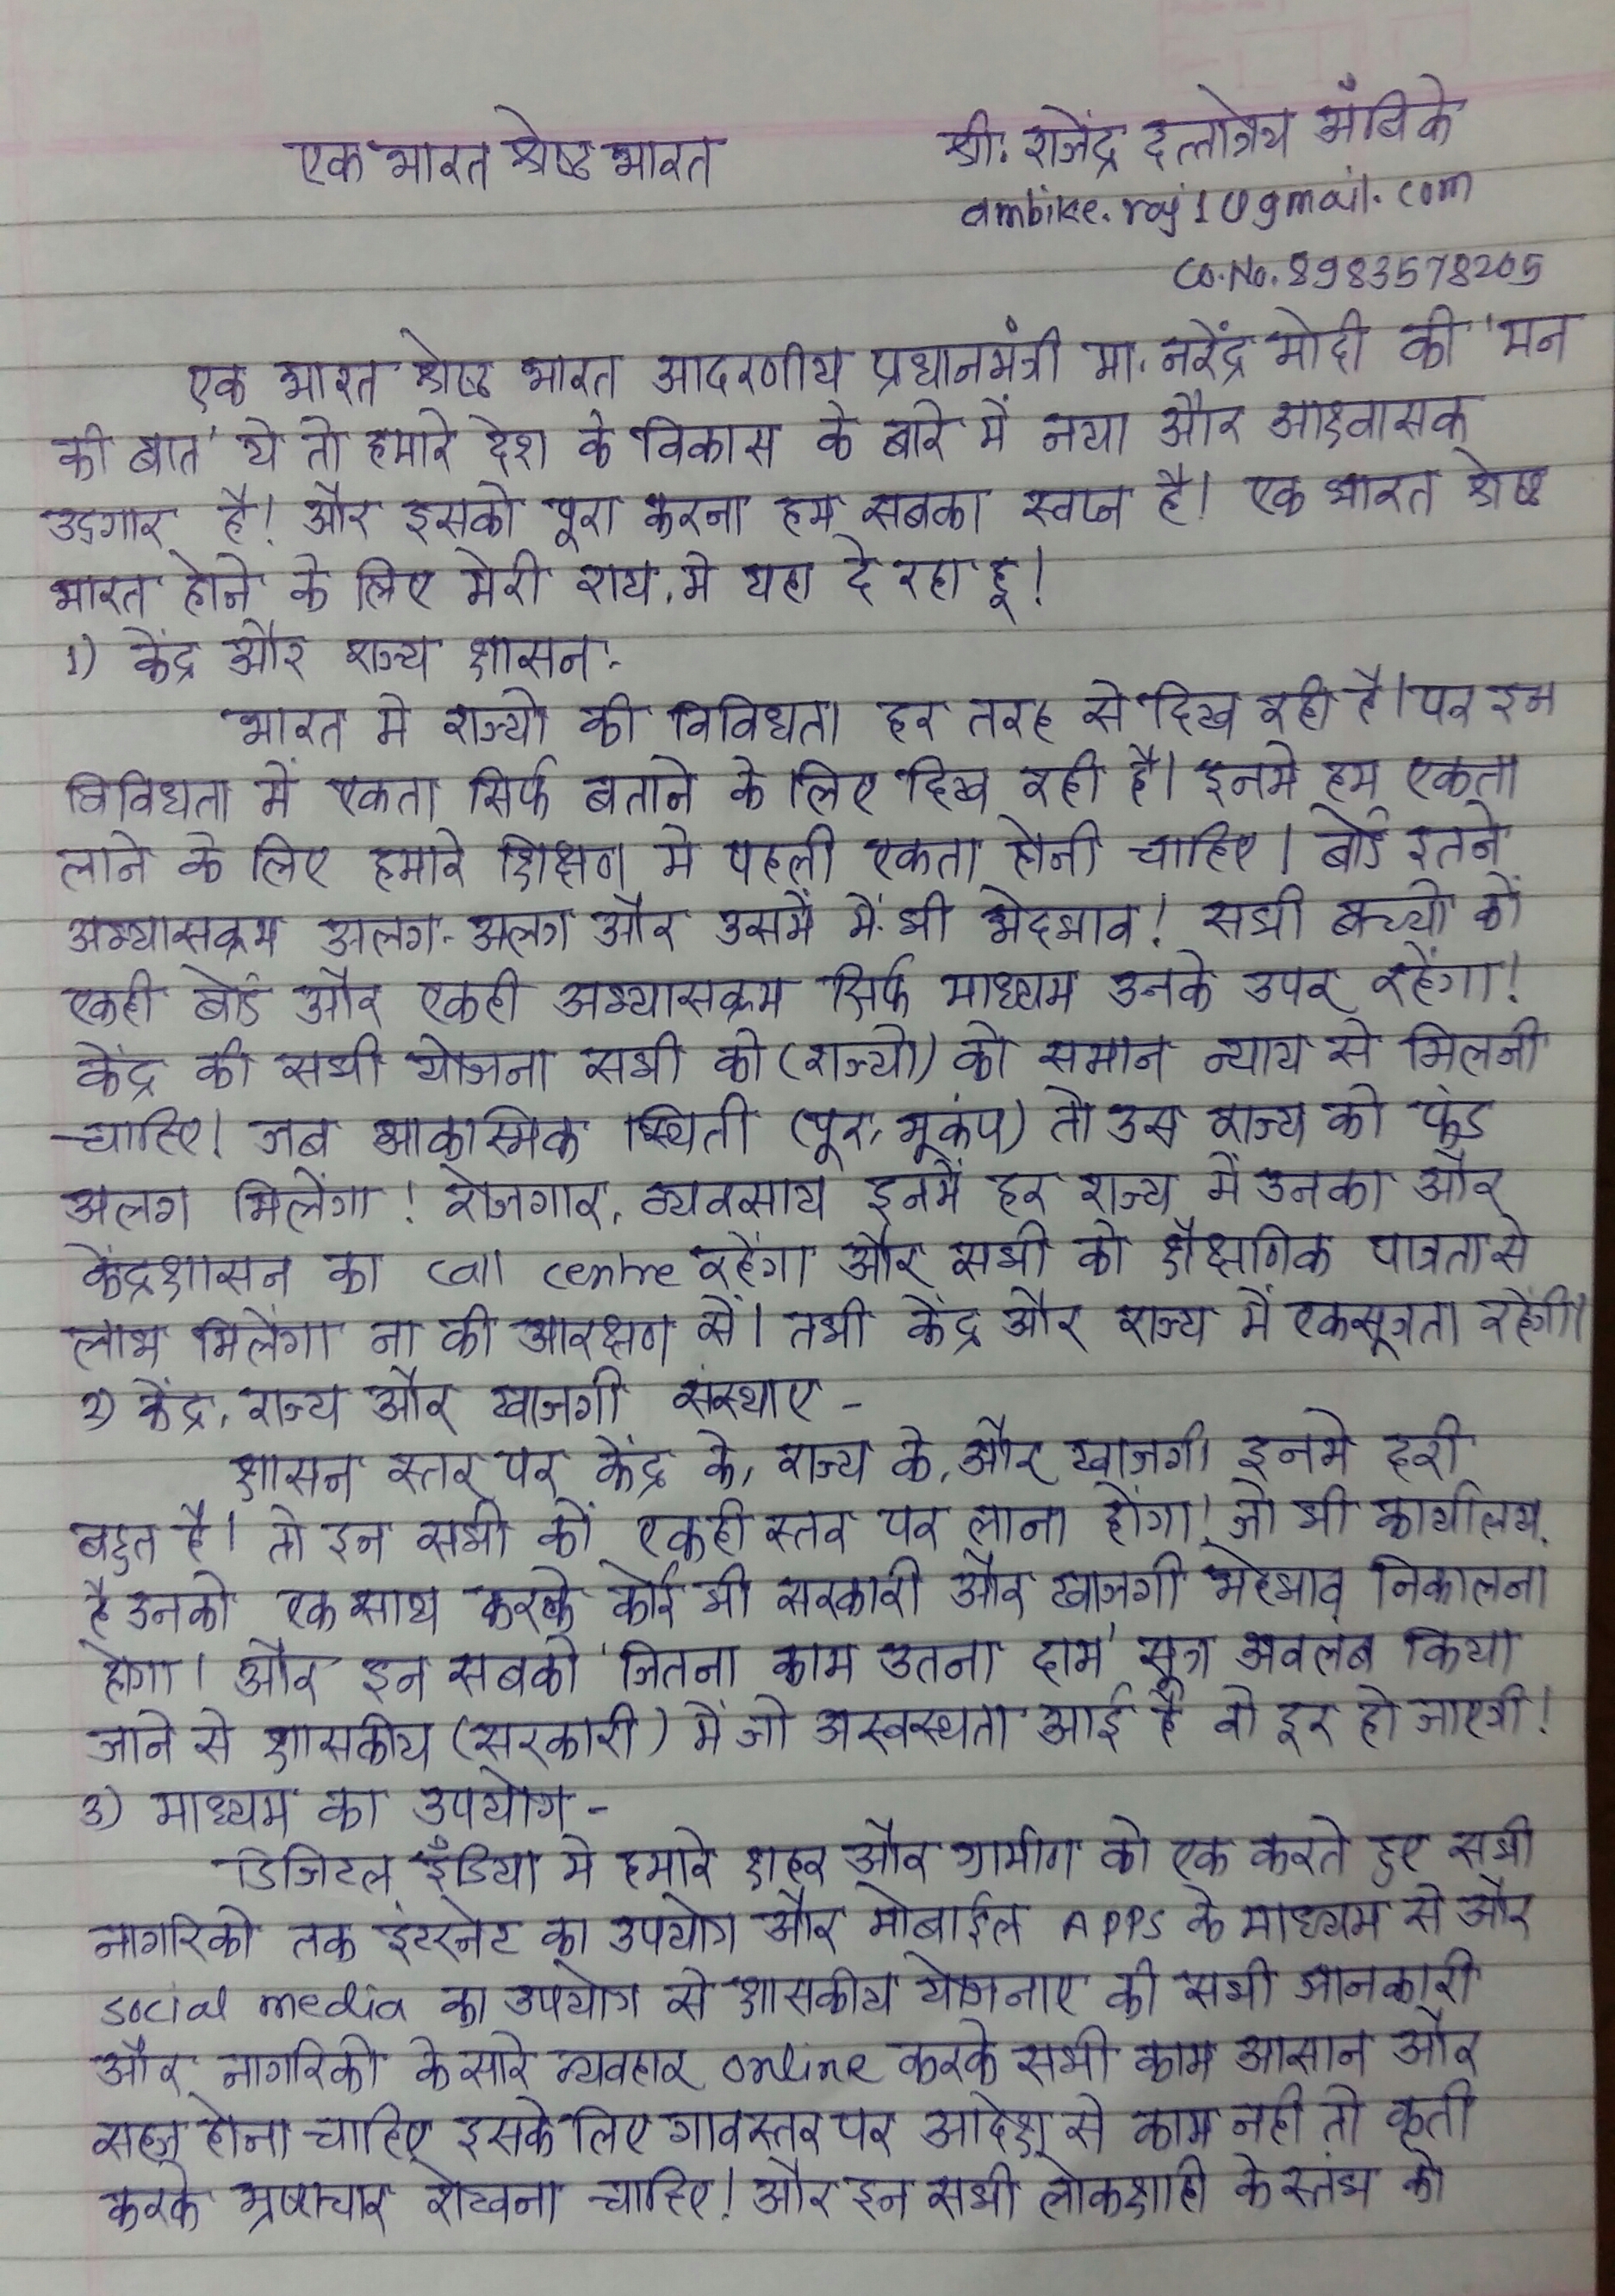 एक भारत श्रेष्ठ भारत
श्री. राजेंद्र दत्तात्रेय अँबिके
ambike.raj1@gmail.com
Co.No. 8983578205
एक भारत श्रेष्ठ भारत आदरणीय प्रधानमंत्री मा. नरेंद्र मोदी की 'मन
की बात' ये तो हमारे देश के विकास के बारे में नया और आश्वासक
उद्गार है! और इसको पूरा करना हम सबका स्वप्न है। एक भारत श्रेष्ठ
भारत होने के लिए मेरी राय. मे यहा दे रहा हू!
1) केंद्र और राज्य शासन -
भारत मे राज्यो की विविधता हर तरह से दिख रही है। पर इन
विविधता में एकता सिर्फ बताने के लिए दिख रही है। इनमे हम एकता
लाने के लिए हमारे शिक्षण मे पहली एकता होनी चाहिए। बोर्ड इतने
अभ्यासक्रम अलग-अलग और उसमें में भी भेदभाव! सभी बच्चो को
एकही बोर्ड और एकही अभ्यासक्रम सिर्फ माध्यम उनके उपर रहेंगा!
केंद्र की सभी योजना सभी को (राज्यो) को समान न्याय से मिलनी
चाहिए। जब आकास्मिक स्थिती (पूर, भूकंप) तो उस राज्य को फंड
अलग मिलेंगा! रोजगार, व्यवसाय इनमें हर राज्य में उनका और
केंद्रशासन का call centre रहेंगा और सभी को शैक्षणिक पात्रता से
लाभ मिलेंगा ना की आरक्षण से। तभी केंद्र और राज्य में एकसूत्रता रहेंगी।
2) केंद्र, राज्य और खाजगी संस्थाए -
शासन स्तर पर केंद्र के, राज्य के, और खाजगी इनमे दरी
बहुत है। तो इन सभी को एकही स्तर पर लाना होंगा! जो भी कार्यालय
है उनको एकसाथ करके कोई भी सरकारी और खाजगी भेदभाव निकालना
होगा। और इन सबको 'जितना काम उतना दाम' सूत्र अवलंब किया
जाने से शासकीय (सरकारी) में जो अस्वस्थता आई है वो दूर हो जाएगी!
3) माध्यम का उपयोग -
डिजिटल इँडिया मे हमारे शहर और ग्रामीण को एक करते हुए सभी
नागरिको तक इंटरनेट का उपयोग और मोबाईल APPS के माध्यम से और
social media का उपयोग से शासकीय योजनाए की सभी जानकारी
और नागरिको के सारे व्यवहार online करके सभी काम आसान और
सहज होना चाहिए इसके लिए गावस्तर पर आदेश से काम नही तो कृती
करके भ्रष्टाचार रोखना चाहिए! और इन सभी लोकशाही के स्तंभ को